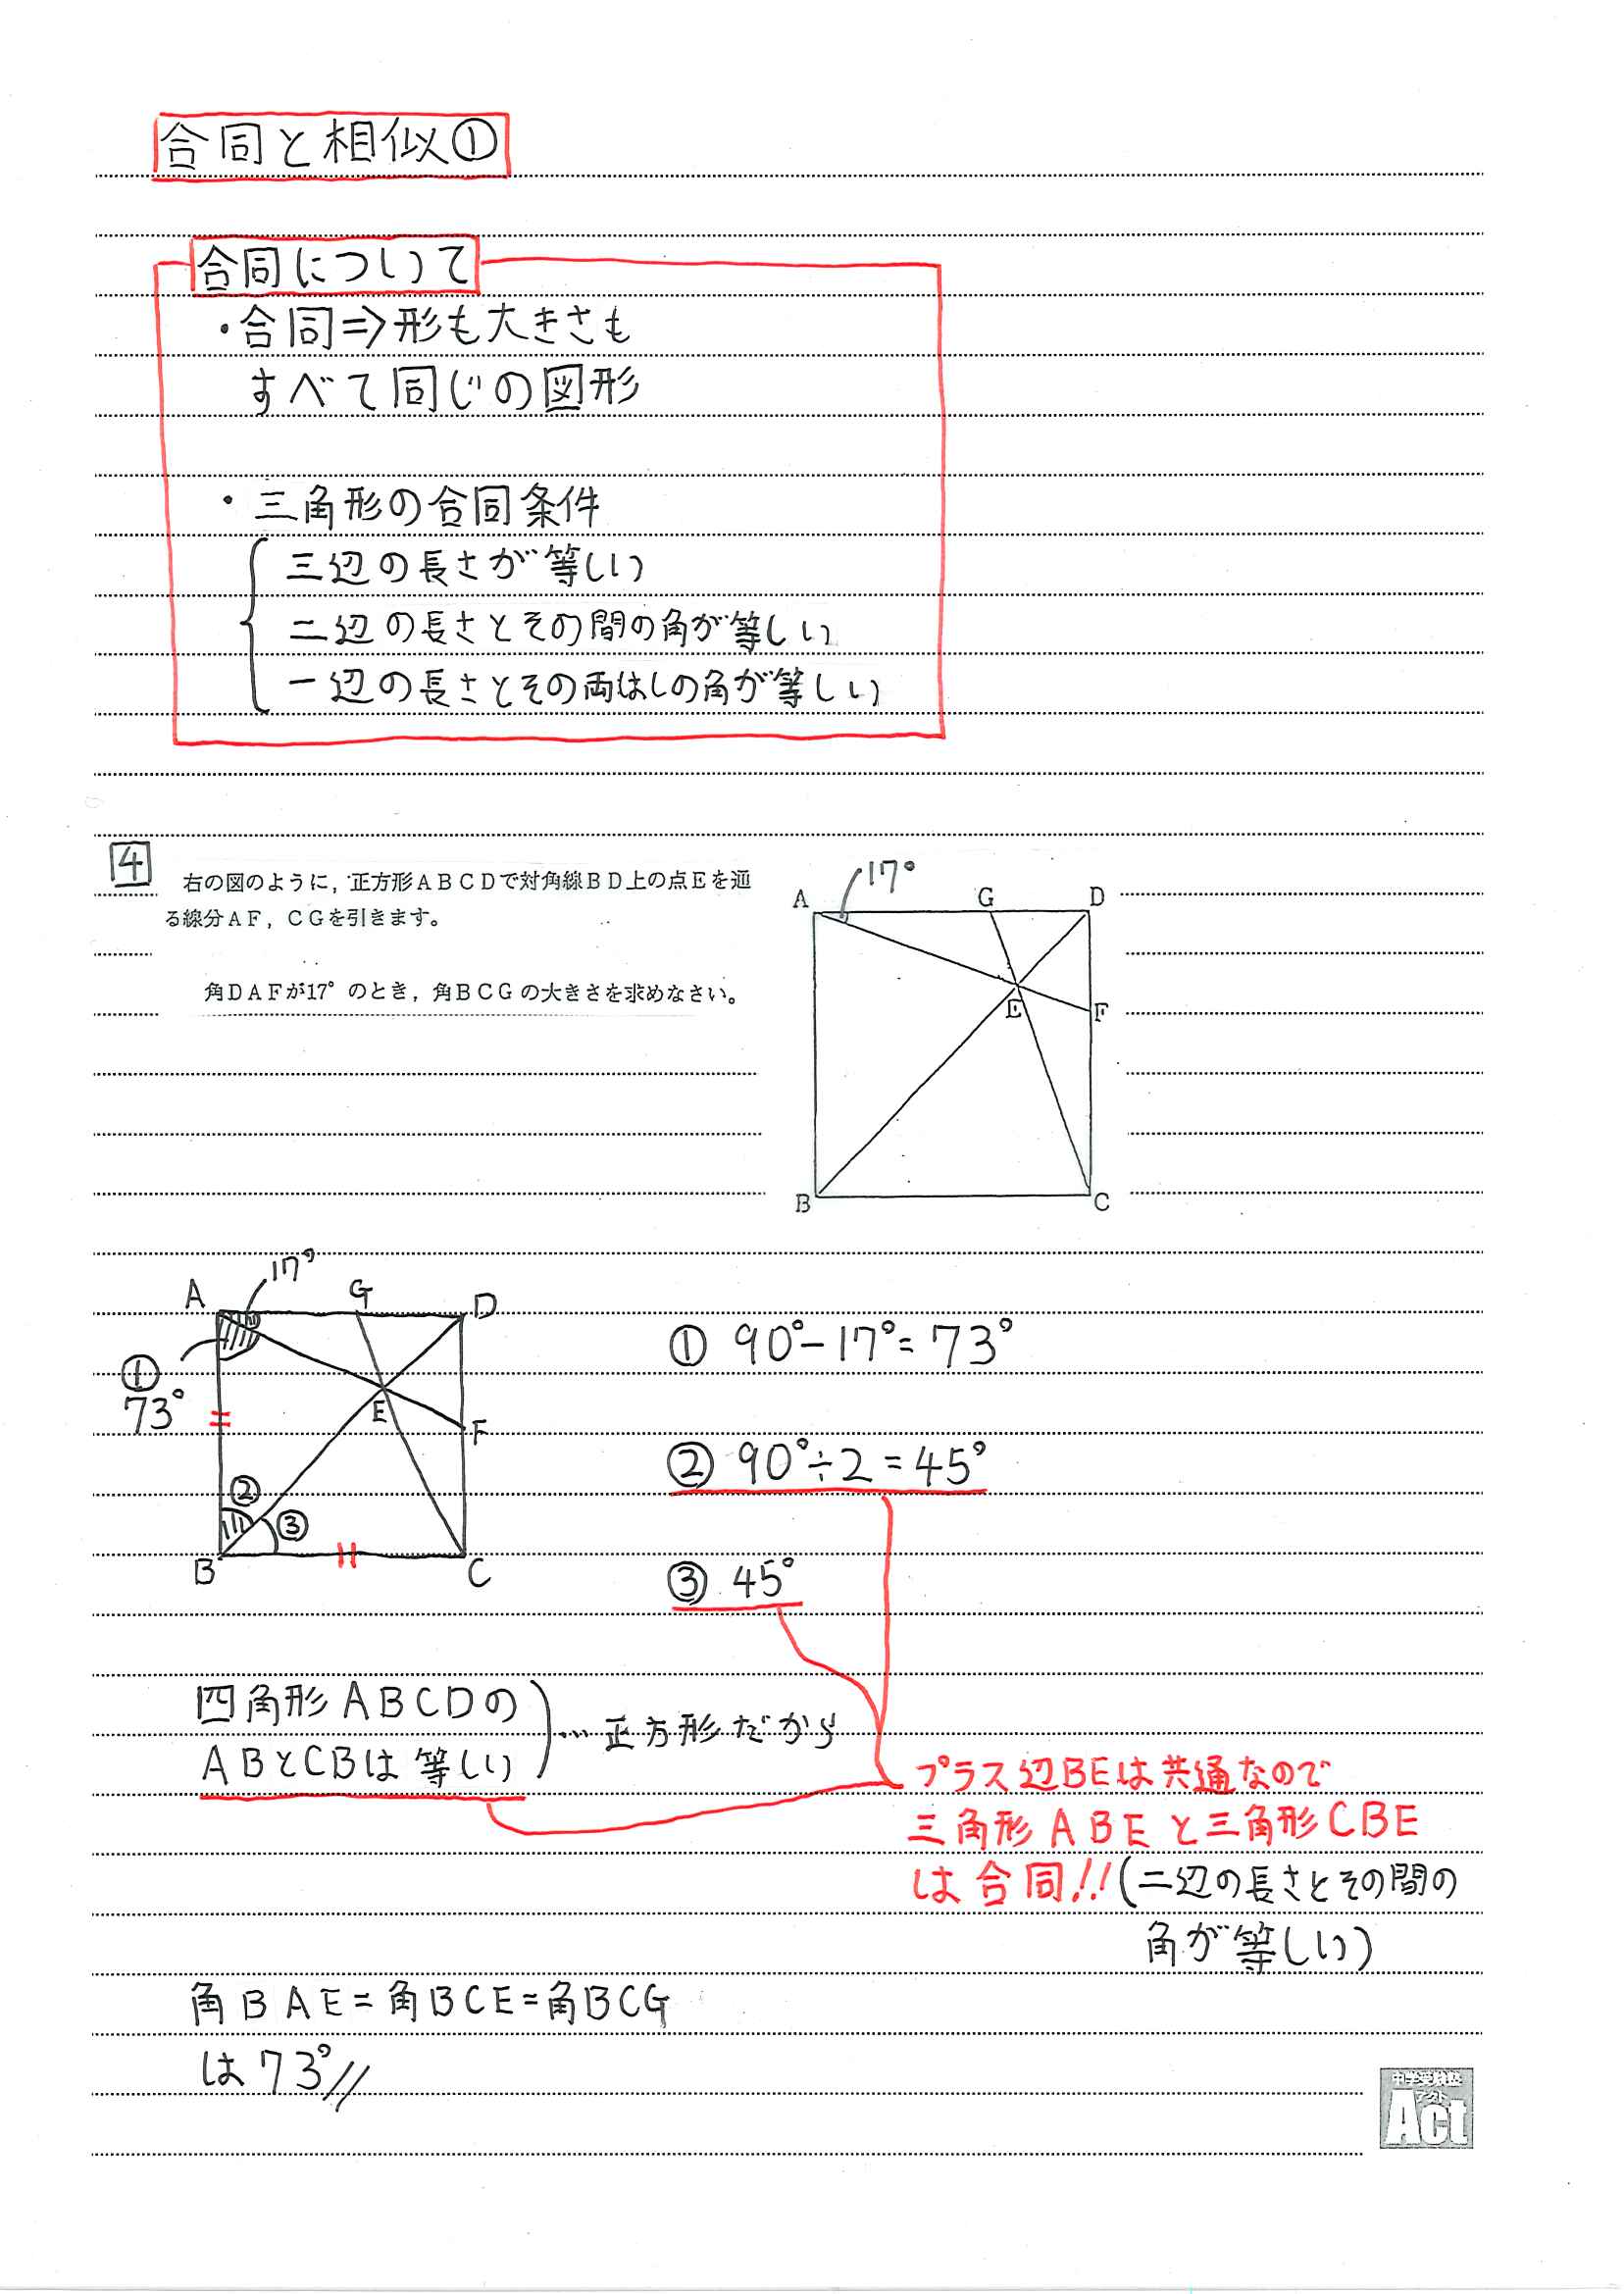 合同と相似①
合同について
・合同⇒形も大きさも
すべて同じの図形
・三角形の合同条件
三辺の長さが等しい
二辺の長さとその間の角が等しい
一辺の長さとその両はしの角が等しい
4
右の図のように，正方形ＡＢＣＤで対角線ＢＤ上の点Ｅを通
る線分ＡＦ，ＣＧを引きます。
角ＤＡＦが17°のとき，角ＢＣＧの大きさを求めなさい。
17°
A G D
E F
B C
17°
A G D
① 90°-17°=73°
①
73°
E F
② 90°÷2=45°
② ③
B C
③ 45°
四角形ABCDの
ABとCBは等しい
…正方形だから
プラス辺BEは共通なので
三角形ABEと三角形CBE
は合同!!(二辺の長さとその間の
角が等しい)
角BAE=角BCE=角BCG
は73°//
中学受験塾
アクト
Act